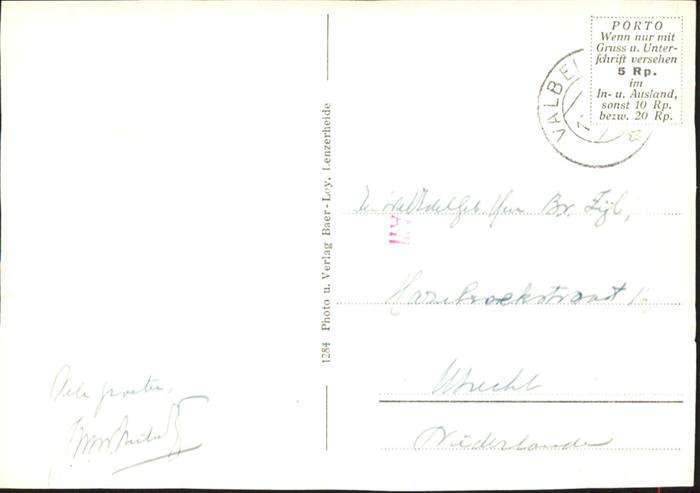 PORTO
Wenn nur mit
Gruss u. Unter-
schrift versehen
5 Rp.
im
In- u. Ausland,
sonst 10 Rp.
bezw. 20 Rp.
VALBE
1284 Photo u. Verlag Baer-Loy, Lenzerheide
Br. Zijl,
Utrecht
Niederlande